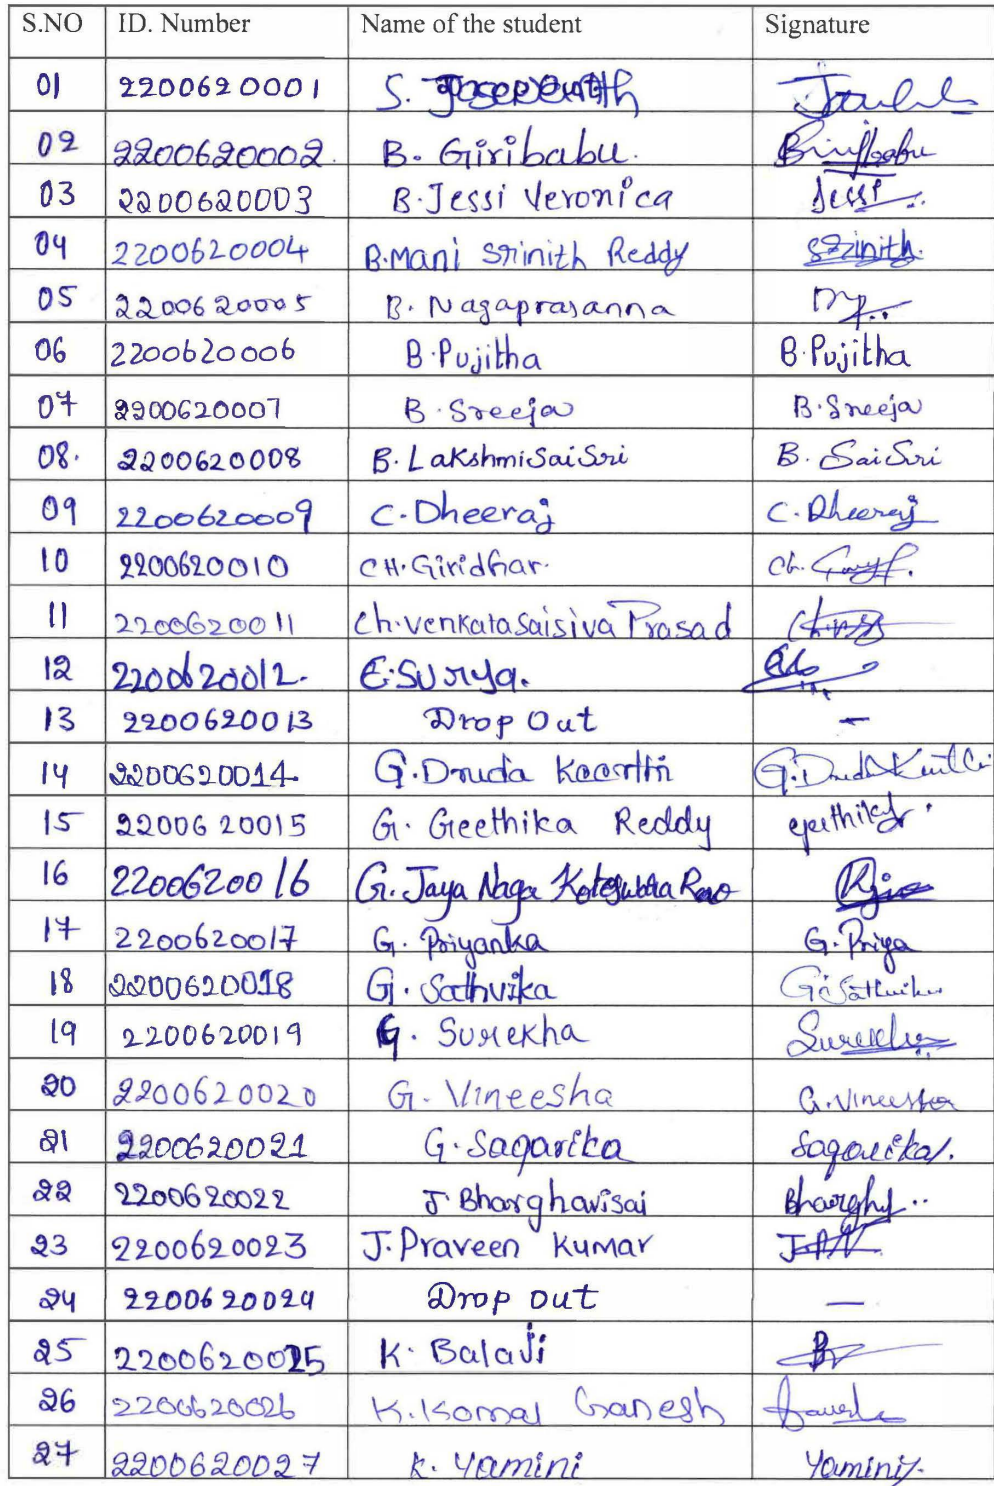 S.NO ID. Number Name of the student Signature
01 2200620001 S.
02 2200620002. B. Giribabu. Giribabu
03 2200620003 B. Jessi Veronica Jessi
04 2200620004 B. Mani Srinith Reddy Srinith.
05 2200620005 B. Nagaprasanna
06 2200620006 B. Pujitha B. Pujitha
07 2200620007 B. Sreeja B. Sreeja
08. 2200620008 B. Lakshmi Sai Sri B. Sai Sri
09 2200620009 C. Dheeraj C. Dheeraj
10 2200620010 CH. Giridhar. Ch.
11 2200620011 Ch. Venkata Sai Siva Prasad
12 2200620012. E. Surya.
13 2200620013 Drop Out —
14 2200620014 G. Druda Keerthi G. Druda Keerthi
15 2200620015 G. Geethika Reddy geethika
16 2200620016 G. Jaya Naga Koteswara Rao
17 2200620017 G. Priyanka G. Priya
18 2200620018 G. Sathvika G. Sathvika
19 2200620019 G. Surekha Surekha
20 2200620020 G. Vineesha G. Vineesha
21 2200620021 G. Sagarika Sagarika.
22 2200620022 J. Bharghavisai Bharghavi
23 2200620023 J. Praveen Kumar
24 2200620024 Drop out —
25 2200620025 K. Balaji
26 2200620026 K. Komal Ganesh
27 2200620027 K. Yamini Yamini